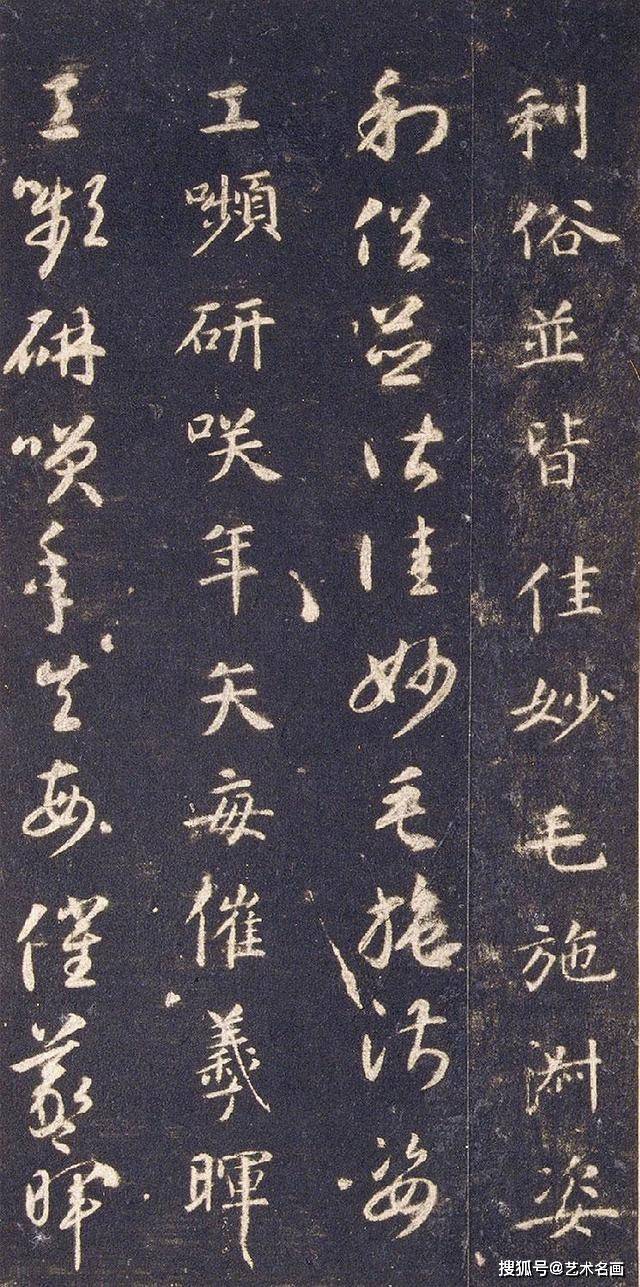 利俗並皆佳妙毛施淑姿
利俗並皆佳妙毛施淑姿
工嚬研咲年矢每催羲暉
工嚬研咲年矢每催羲暉
搜狐号@艺术名画